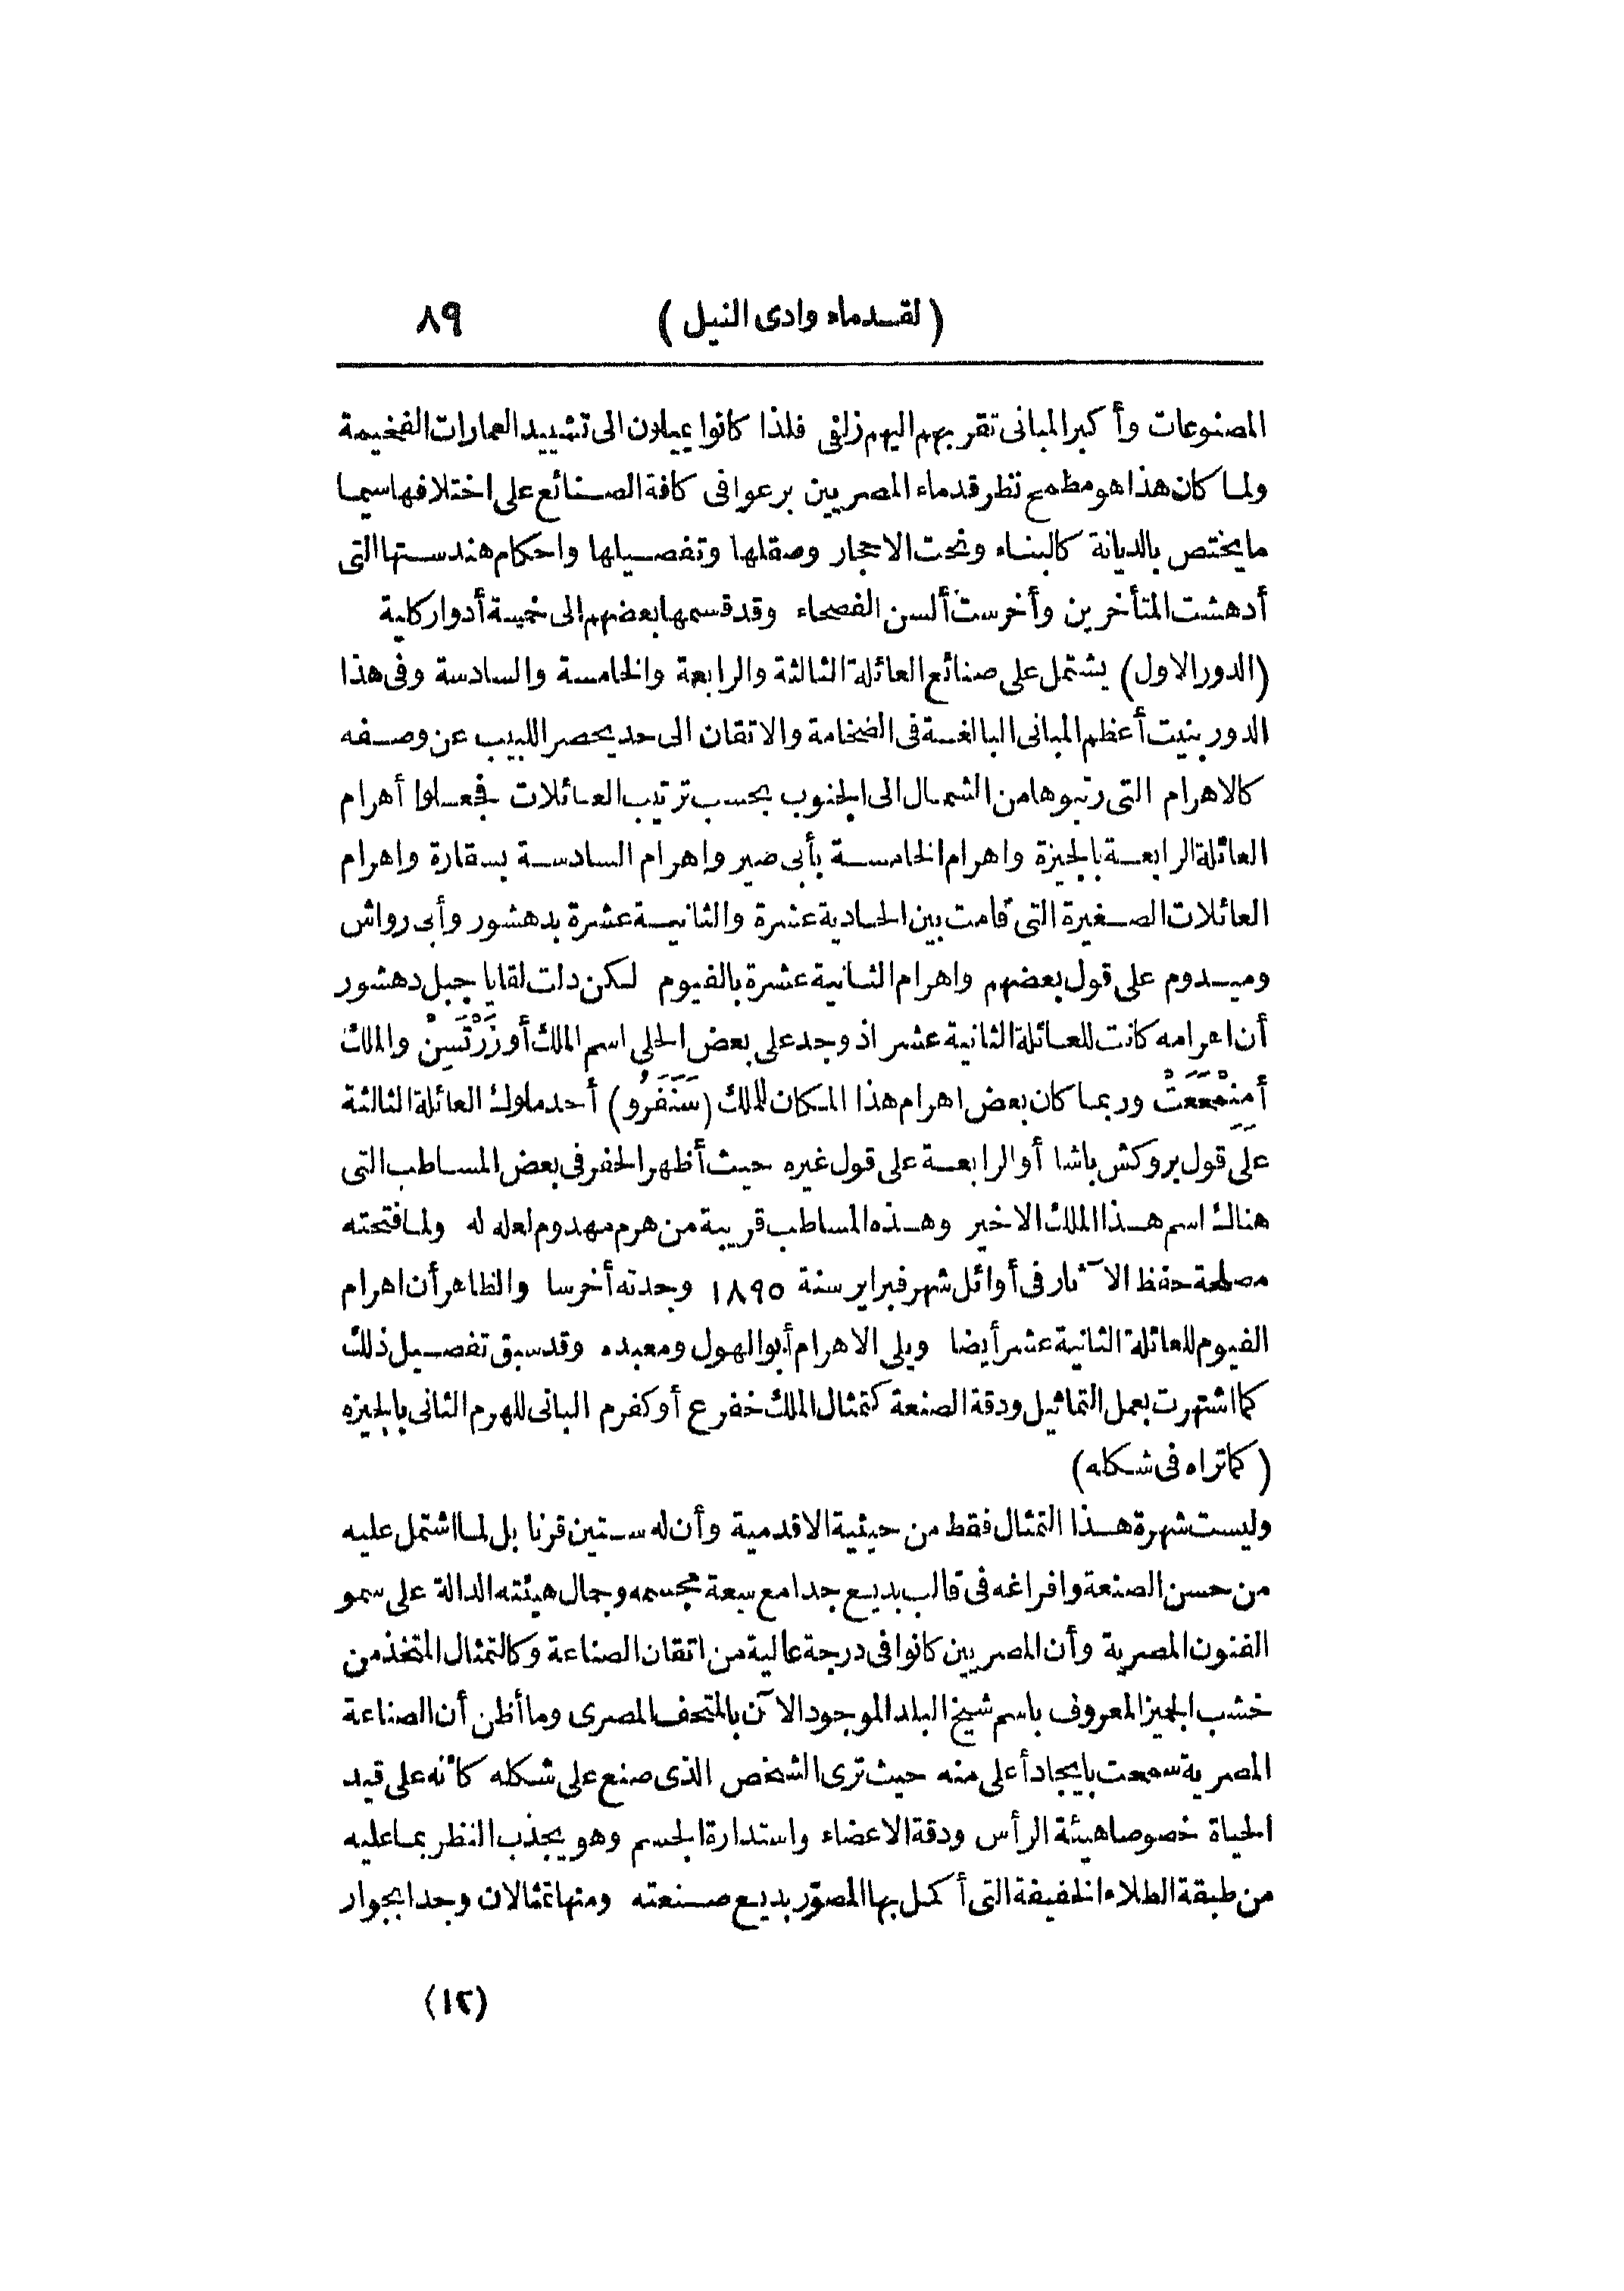 (لقدماء وادى النيل) ٨٩
المصنوعات وأكبر المبانى تقربهم اليهم زلفى فلذا كانوا يميلون الى تشييد العمارات الفخيمة
ولما كان هذا هو مطمح نظر قدماء المصريين برعوا فى كافة الصنائع على اختلافها سيما
ما يختص بالديانة كالبناء ونحت الاحجار وصقلها وتفصيلها واحكام هندستها التى
أدهشت المتأخرين وأخرست ألسن الفصحاء وقد قسمها بعضهم الى خمسة أدوار كلية
(الدور الاول) يشتمل على صنائع العائلة الثالثة والرابعة والخامسة والسادسة وفى هذا
الدور بنيت أعظم المبانى البالغة فى الضخامة والاتقان الى حد يحصر اللبيب عن وصفه
كالاهرام التى رتبوها من الشمال الى الجنوب بحسب ترتيب العائلات فجعلوا أهرام
العائلة الرابعة بالجيزة واهرام الخامسة بأبى صير واهرام السادسة بسقارة واهرام
العائلات الصغيرة التى قامت بين الحادية عشرة والثانية عشرة بدهشور وأبى رواش
وميدوم على قول بعضهم واهرام الثانية عشرة بالفيوم لكن دلت لقايا جبل دهشور
أن اهرامه كانت للعائلة الثانية عشر اذ وجد على بعض الحلى اسم الملك أوزَرْتَسِنْ والملك
أمَنِمْحَعَتْ وربما كان بعض اهرام هذا المكان للملك (سَنَفَرُو) أحد ملوك العائلة الثالثة
على قول بروكش باشا أو الرابعة على قول غيره حيث أظهر الحفر فى بعض المساطب التى
هناك اسم هذا الملك الاخير وهذه المساطب قريبة من هرم مهدوم لعله له ولما فتحته
مصلحة حفظ الآثار فى أوائل شهر فبراير سنة ١٨٩٥ وجدته أخرسا والظاهر أن اهرام
الفيوم للعائلة الثانية عشر أيضا ويلى الاهرام أبو الهول ومعبده وقد سبق تفصيل ذلك
كما اشتهرت بعمل التماثيل ودقة الصنعة كتمثال الملك خفرع أو كفرم البانى للهرم الثانى بالجيزه
(كما تراه فى شكله)
وليست شهرة هذا التمثال فقط من حيثية الاقدمية وأن له ستين قرنا بل لما اشتمل عليه
من حسن الصنعة وافراغه فى قالب بديع جدا مع سعة مجسمه وجمال هيئته الدالة على سمو
الفنون المصرية وأن المصريين كانوا فى درجة عالية من اتقان الصناعة وكالتمثال المتخذ من
خشب الجميز المعروف باسم شيخ البلد الموجود الآن بالمتحف المصرى وما أظن أن الصناعة
المصرية سمحت بايجاد أعلى منه حيث ترى الشخص الذى صنع على شكله كأنه على قيد
الحياة خصوصا هيئة الرأس ودقة الاعضاء واستدارة الجسم وهو يجذب النظر بما عليه
من طبقة الطلاء الخفيفة التى أكمل بها المصوّر بديع صنعته ومنها تمثالان وجدا بجوار
(١٢)